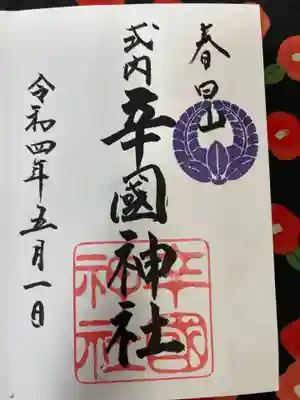 春日山
式内 辛國神社
令和四年五月一日
辛國
神社